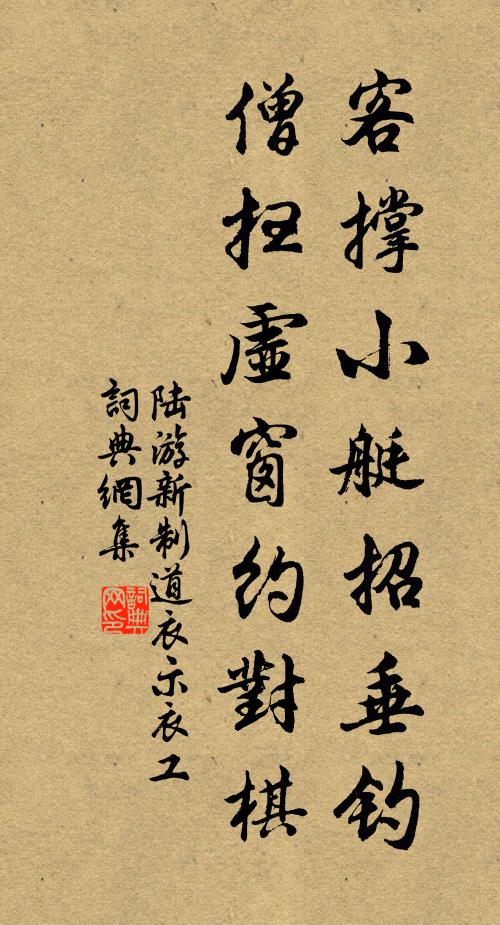 客撑小艇招垂钓
僧扫虚窗约對棋
陆游新制道衣示衣工
詞典網集
詞典网印